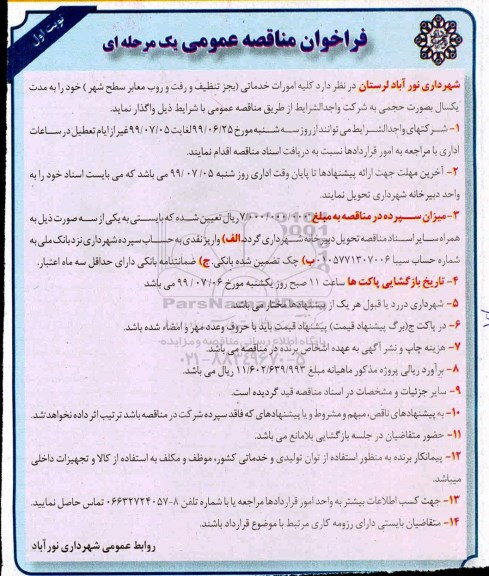 نوبت اول
فراخوان مناقصه عمومی یک مرحله ای
شهرداری نور آباد لرستان در نظر دارد کلیه امورات خدماتی (بجز تنظیف و رفت و روب معابر سطح شهر) خود را به مدت
یکسال بصورت حجمی به شرکت واجدالشرایط از طریق مناقصه عمومی با شرایط ذیل واگذار نماید.
۱- شرکتهای واجدالشرایط می توانند از روز سه شنبه مورخ ۹۹/۰۶/۲۵ لغایت ۹۹/۰۷/۰۵ غیر از ایام تعطیل در ساعات
اداری با مراجعه به امور قراردادها نسبت به دریافت اسناد مناقصه اقدام نمایند.
۲- آخرین مهلت جهت ارائه پیشنهادها تا پایان وقت اداری روز شنبه ۹۹/۰۷/۰۵ می باشد که می بایست اسناد خود را به
واحد دبیرخانه شهرداری تحویل نمایند.
۳- میزان سپرده در مناقصه به مبلغ ۷/۰۰۰/۰۰۰/۰۰۰ ریال تعیین شده که بایستی به یکی از سه صورت ذیل به
همراه سایر اسناد مناقصه تحویل دبیرخانه شهرداری گردد. الف) واریز نقدی به حساب سپرده شهرداری نزد بانک ملی به
شماره حساب سیبا ۰۱۰۵۷۷۱۳۰۷۰۰۶ ب) چک تضمین شده بانکی. ج) ضمانتنامه بانکی دارای حداقل سه ماه اعتبار.
۴- تاریخ بازگشایی پاکت ها ساعت ۱۱ صبح روز یکشنبه مورخ ۹۹/۰۷/۰۶ می باشد
۵- شهرداری در رد یا قبول هر یک از پیشنهادها مختار می باشد.
۶- در پاکت ج(برگ پیشنهاد قیمت) پیشنهاد قیمت باید با حروف وعدد مهر و امضاء شده باشد.
۷- هزینه چاپ و نشر آگهی به عهده اشخاص برنده در مناقصه می باشد.
۸- برآورد ریالی پروژه مذکور ماهیانه مبلغ ۱۱/۶۰۲/۶۳۹/۹۹۳ ریال می باشد.
۹- سایر جزئیات و مشخصات در اسناد مناقصه قید گردیده است.
۱۰- به پیشنهادهای ناقص، مبهم و مشروط و یا پیشنهادهای که فاقد سپرده شرکت در مناقصه باشد ترتیب اثر داده نخواهد شد.
۱۱- حضور متقاضیان در جلسه بازگشایی بلامانع می باشد.
۱۲- پیمانکار برنده به منظور استفاده از توان تولیدی و خدماتی کشور، موظف و مکلف به استفاده از کالا و تجهیزات داخلی
میباشد.
۱۳- جهت کسب اطلاعات بیشتر به واحد امور قراردادها مراجعه یا با شماره تلفن ۸-۰۶۶۳۲۷۲۴۰۵۷ تماس حاصل نمایید.
۱۴- متقاضیان بایستی دارای رزومه کاری مرتبط با موضوع قرارداد باشند.
روابط عمومی شهرداری نورآباد